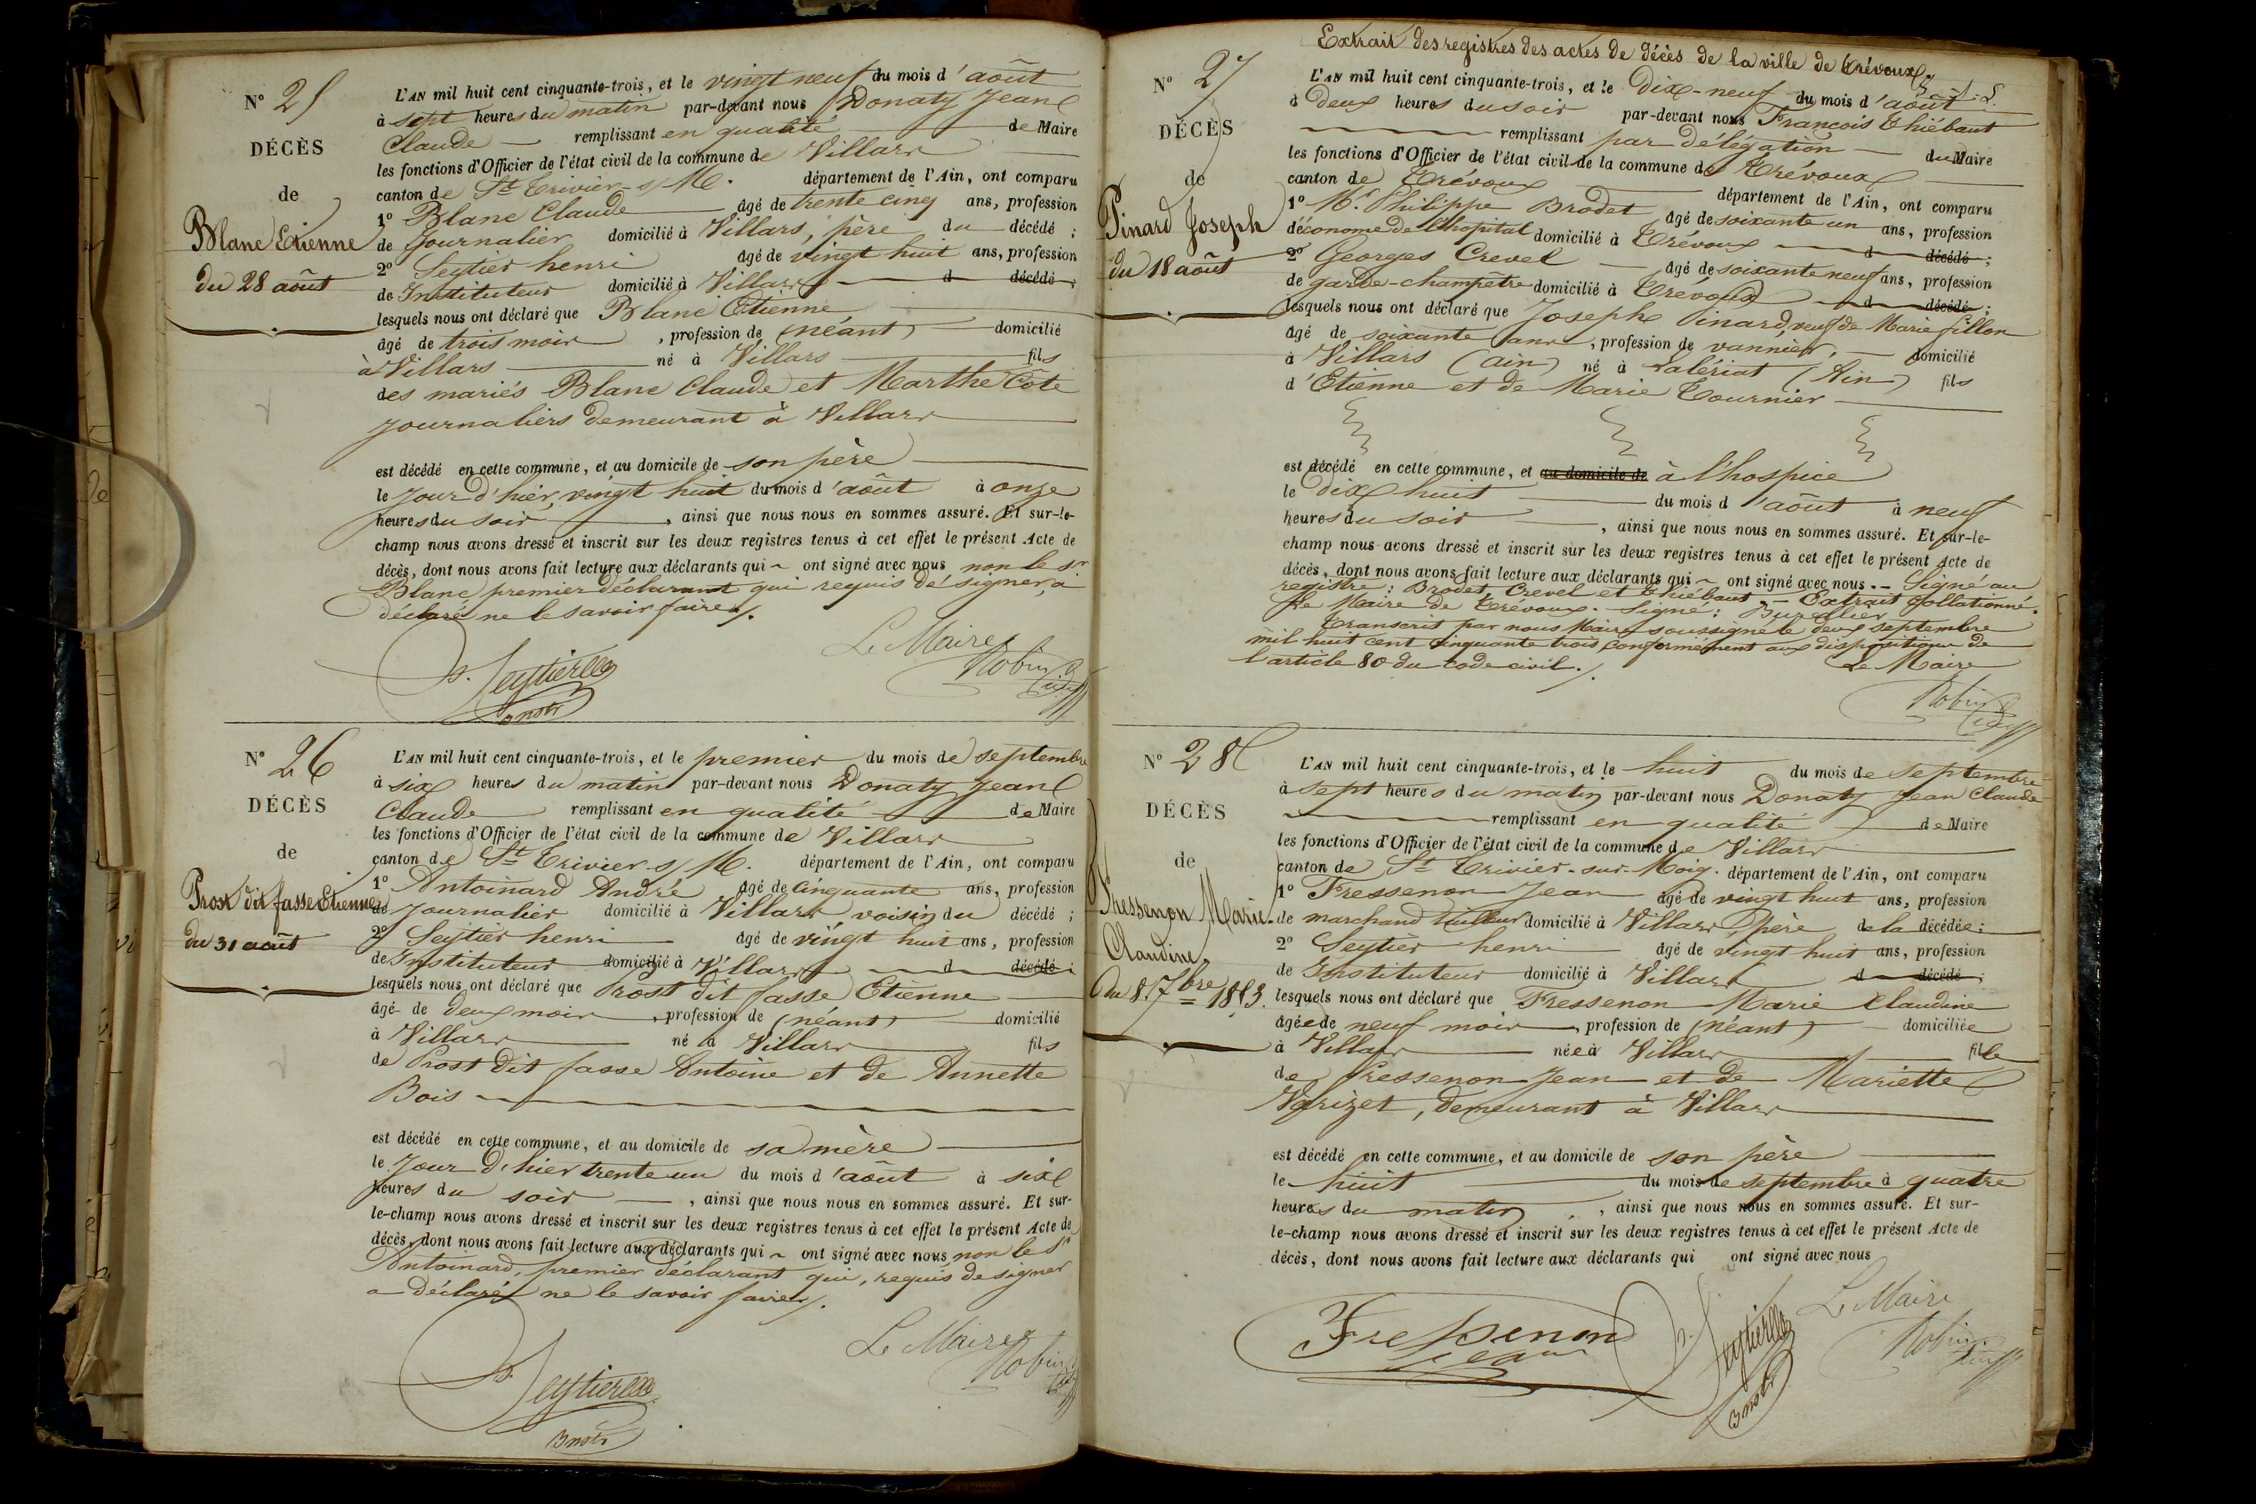 N° 25
DÉCÈS
de
Blanc Etienne
du 28 août
L'AN mil huit cent cinquante-trois, et le vingt neuf du mois d'août
à sept heures du matin par-devant nous Donaty Jean
Claude remplissant en qualité de Maire
les fonctions d'Officier de l'état civil de la commune de Villars
canton de St Trivier-s/M. département de l'Ain, ont comparu
1° Blanc Claude âgé de trente cinq ans, profession
de Journalier domicilié à Villars, père du décédé ;
2° Seytier henri âgé de vingt huit ans, profession
de Instituteur domicilié à Villars d décédé ;
lesquels nous ont déclaré que Blanc Etienne
âgé de trois mois, profession de (néant) domicilié
à Villars né à Villars fils
des mariés Blanc Claude et Marthe Côte
journaliers demeurant à Villars
est décédé en cette commune, et au domicile de son père
le Jour d'hier, vingt huit du mois d'août à onze
heures du soir, ainsi que nous nous en sommes assuré. Et sur-le-
champ nous avons dressé et inscrit sur les deux registres tenus à cet effet le présent Acte de
décès, dont nous avons fait lecture aux déclarants qui ont signé avec nous non le Sr
Blanc, premier déclarant qui requis de signer, a
déclaré ne le savoir faire.
Le Maire
h. Seytier
Instr
N° 26
DÉCÈS
de
Prost dit fasse Etienne
du 31 août
L'AN mil huit cent cinquante-trois, et le premier du mois de septembre
à six heures du matin par-devant nous Donaty Jean
Claude remplissant en qualité de Maire
les fonctions d'Officier de l'état civil de la commune de Villars
canton de St Trivier-s/M. département de l'Ain, ont comparu
1° Antoinard André âgé de cinquante ans, profession
de Journalier domicilié à Villars voisin du décédé ;
2° Seytier henri âgé de vingt huit ans, profession
de Instituteur domicilié à Villars d décédé ;
lesquels nous ont déclaré que Prost dit fasse Etienne
âgé de deux mois, profession de (néant) domicilié
à Villars né à Villars fils
de Prost dit fasse Antoine et de Annette
Bois
est décédé en cette commune, et au domicile de sa mère
le Jour d'hier trente un du mois d'août à six
heures du soir, ainsi que nous nous en sommes assuré. Et sur-
le-champ nous avons dressé et inscrit sur les deux registres tenus à cet effet le présent Acte de
décès, dont nous avons fait lecture aux déclarants qui ont signé avec nous non le Sr
Antoinard, premier déclarant qui, requis de signer
a déclaré ne le savoir faire.
Le Maire
h. Seytier
Instr
Extrait des registres des actes de décès de la ville de Trévoux
N° 27
DÉCÈS
de
Pinard Joseph
du 18 août
L'AN mil huit cent cinquante-trois, et le Dix-neuf du mois d'août
à deux heures du soir par-devant nous François Thiébaut
remplissant par délégation du Maire
les fonctions d'Officier de l'état civil de la commune de Trévoux
canton de Trévoux département de l'Ain, ont comparu
1° Mr. Philippe Brodet âgé de soixante un ans, profession
d'économe de l'hopital domicilié à Trévoux d décédé ;
2° Georges Crevel âgé de soixante neuf ans, profession
de garde-champêtre domicilié à Trévoux d décédé ;
lesquels nous ont déclaré que Joseph Pinard, veuf de Marie fillon
âgé de soixante ans, profession de vannier, domicilié
à Villars (ain) né à Valériat (Ain) fils
d'Etienne et de Marie Tournier
est décédé en cette commune, et au domicile de à l'hospice
le dix huit du mois d'août à neuf
heures du soir, ainsi que nous nous en sommes assuré. Et sur-le-
champ nous avons dressé et inscrit sur les deux registres tenus à cet effet le présent Acte de
décès, dont nous avons fait lecture aux déclarants qui ont signé avec nous. - Signé au
registre : Brodet, Crevel et Thiébaut - Extrait collationné.
Le Maire de Trévoux. - Signé :
Transcrit par nous Maire soussigné le deux septembre
mil huit cent cinquante trois conformément aux dispositions de
l'article 80 du code civil.
Le Maire
N° 28
DÉCÈS
de
Fressenon Marie
Claudine
du 8 7bre 1853.
L'AN mil huit cent cinquante-trois, et le huit du mois de septembre
à sept heures du matin par-devant nous Donaty Jean Claude
remplissant en qualité de Maire
les fonctions d'Officier de l'état civil de la commune de Villars
canton de St Trivier-sur-Moig. département de l'Ain, ont comparu
1° Fressenon Jean âgé de vingt huit ans, profession
de marchand tailleur domicilié à Villars, père de la décédée ;
2° Seytier henri âgé de vingt huit ans, profession
de Instituteur domicilié à Villars d décédé ;
lesquels nous ont déclaré que Fressenon Marie Claudine
âgée de neuf mois, profession de (néant) domiciliée
à Villars née à Villars fille
de Fressenon Jean et de Mariette
Varizet, demeurant à Villars
est décédé en cette commune, et au domicile de son père
le huit du mois de septembre à quatre
heures du matin, ainsi que nous nous en sommes assuré. Et sur-
le-champ nous avons dressé et inscrit sur les deux registres tenus à cet effet le présent Acte de
décès, dont nous avons fait lecture aux déclarants qui ont signé avec nous
Fressenon
Jean
h. Seytier
Instr
Le Maire